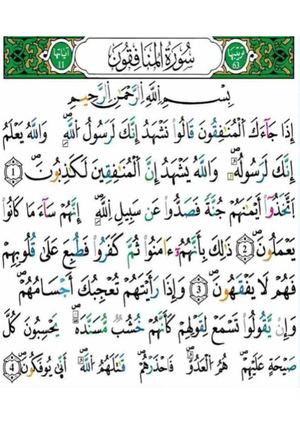 ترتيبها ٦٣ سُورَةُ المُنَافِقُونَ آياتها ١١
بِسْمِ اللَّهِ الرَّحْمَٰنِ الرَّحِيمِ
إِذَا جَآءَكَ ٱلْمُنَٰفِقُونَ قَالُوا۟ نَشْهَدُ إِنَّكَ لَرَسُولُ ٱللَّهِ ۗ وَٱللَّهُ يَعْلَمُ
إِنَّكَ لَرَسُولُهُۥ وَٱللَّهُ يَشْهَدُ إِنَّ ٱلْمُنَٰفِقِينَ لَكَٰذِبُونَ ١
ٱتَّخَذُوٓا۟ أَيْمَٰنَهُمْ جُنَّةً فَصَدُّوا۟ عَن سَبِيلِ ٱللَّهِ ۚ إِنَّهُمْ سَآءَ مَا كَانُوا۟
يَعْمَلُونَ ٢ ذَٰلِكَ بِأَنَّهُمْ ءَامَنُوا۟ ثُمَّ كَفَرُوا۟ فَطُبِعَ عَلَىٰ قُلُوبِهِمْ
فَهُمْ لَا يَفْقَهُونَ ٣ وَإِذَا رَأَيْتَهُمْ تُعْجِبُكَ أَجْسَامُهُمْ ۖ
وَإِن يَقُولُوا۟ تَسْمَعْ لِقَوْلِهِمْ ۖ كَأَنَّهُمْ خُشُبٌ مُّسَنَّدَةٌ ۖ يَحْسَبُونَ كُلَّ
صَيْحَةٍ عَلَيْهِمْ ۚ هُمُ ٱلْعَدُوُّ فَٱحْذَرْهُمْ ۚ قَٰتَلَهُمُ ٱللَّهُ ۖ أَنَّىٰ يُؤْفَكُونَ ٤